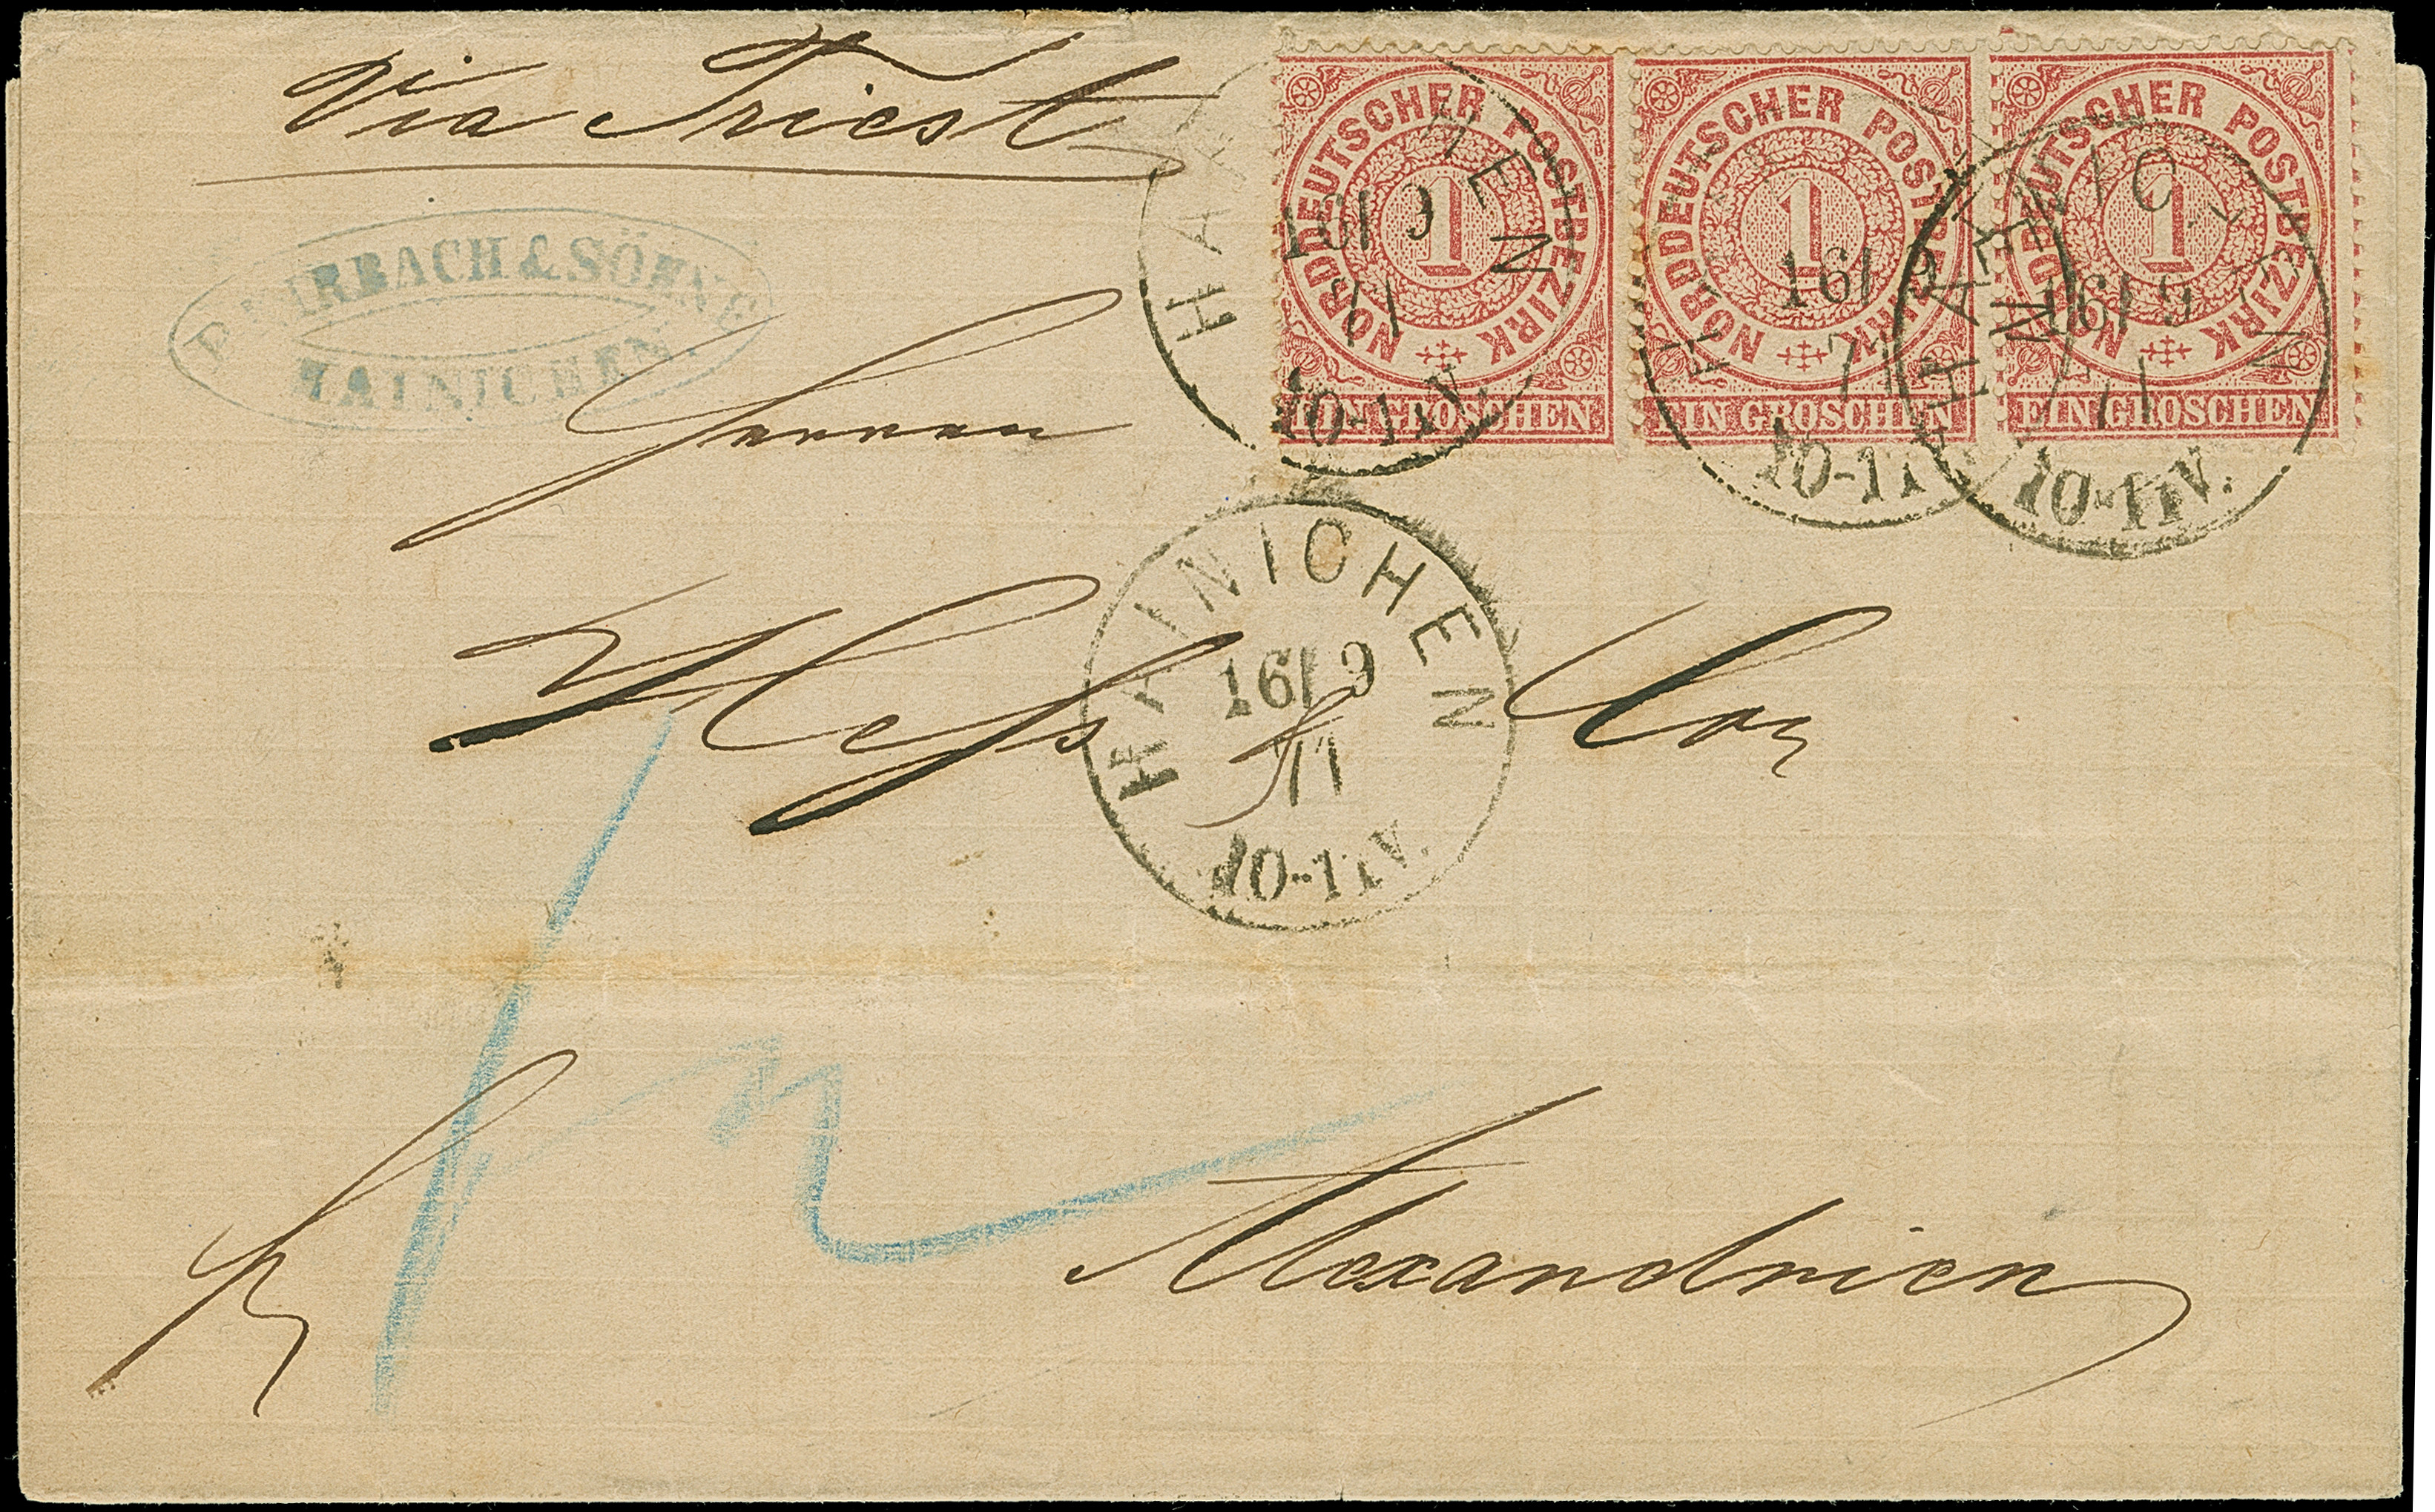 Via Triest
& SÖHNE
HAINICHEN.
NORDDEUTSCHER POSTBEZIRK
1
EIN GROSCHEN
NORDDEUTSCHER POSTBEZIRK
1
EIN GROSCHEN
NORDDEUTSCHER POSTBEZIRK
1
EIN GROSCHEN
HAINICHEN
16/9
71
10-11V.
HAINICHEN
16/9
71
10-11V.
HAINICHEN
16/9
71
10-11V.
Herren
Hess & Co
HAINICHEN
16/9
71
10-11V.
Alexandrien